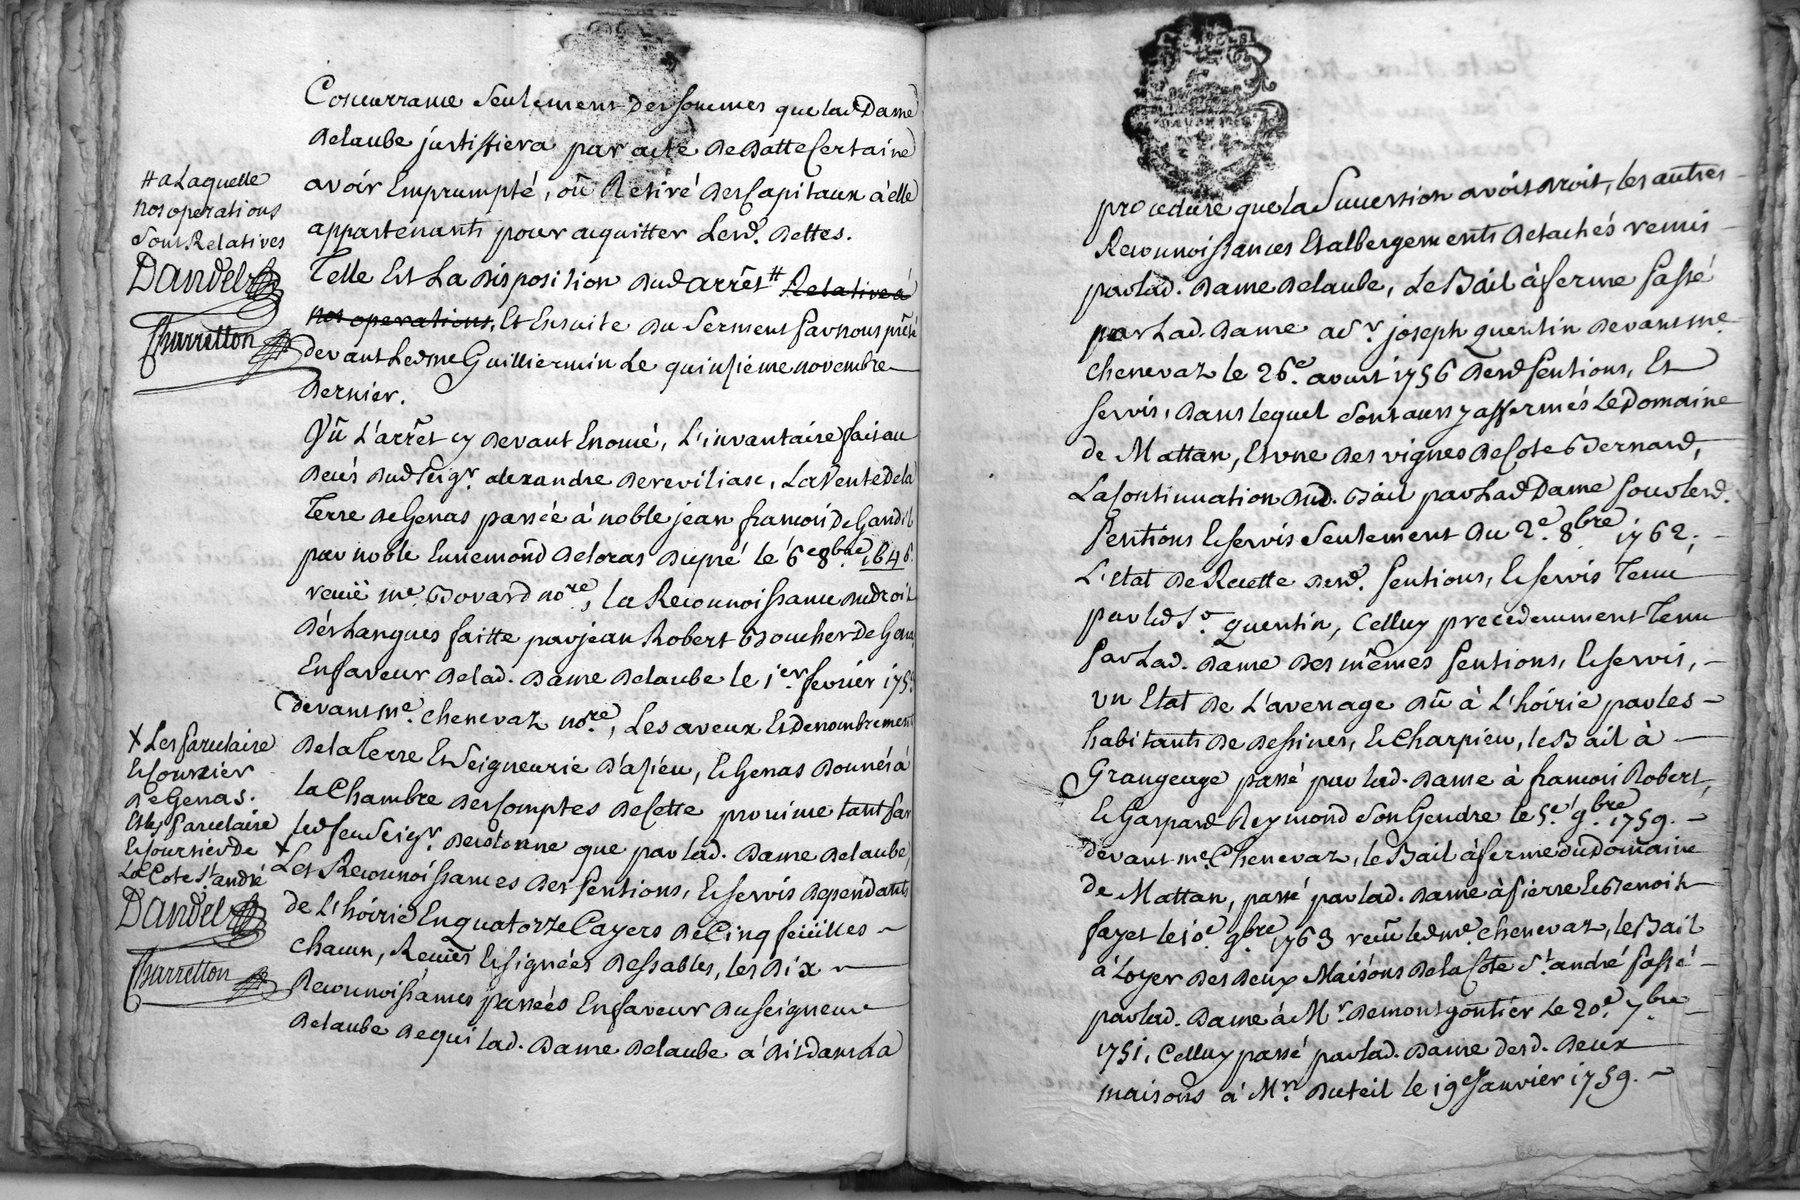 Concurrame seulement des sommes que lad Dame
Delaube justiffiera par acte De Datte Certaine
avoir Emprumpté, où Retiré Des Capitaux à elle
appartenants pour acquitter Lesd. Dettes.
Telle Est La Disposition Dud arrêt # Relative à
nos operations, Et Ensuite Du Serment par nous prêté
devant Led me Guilliermin Le quinzieme novembre
Dernier.
Vû L'arrêt cy Devant Enomé, L'invantaire fait au
Decés Dud Seigr. alexandre Dereviliasc, La Vente De la
Terre De Genas passée à noble jean francois De Gandil
par noble Ennemond Deloras Dupré le 6e 8bre 1646.
receüe me. Bovard nore, la Reconnoissance Du droit
Des Langues faitte par jean Robert Boucher De Genas
En faveur De lad. Dame Delaube le 1er. fevrier 175
devant me. Chenevaz nore, Les aveux Et Denombrement
De la Terre Et Seigneurie D'azieu, & Genas Donnés à
la Chambre Des Comptes De Cette province tant par
led feu Seigr. que par lad. Dame Delaube
x Les Reconnoissances Des Pentions, & servis Dependants
de L'hoirie En quatorze Cayers De Cinq feüilles
chacun, Recües & signées Dessables, les Dix
Reconnoissances passées En faveur Du seigneur
Delaube De qui lad. Dame Delaube a Dit dans La
# a Laquelle
nos operations
sont Relatives
Dandel
Charretton
x Les parcelaire
& Coursier
De Genas.
Et les parcelaire
& Coursier De
La Cote St. andré
Dandel
Charretton
procedure que la Succession avoit Droit, les autres
Reconnoissances Et albergements Detachés remis
par lad. Dame Delaube, Le Bail à ferme passé
par Lad. Dame a Sr. joseph quentin Devant me.
Chenevaz le 26e. avout 1756 Desd pentions, Et
servis, Dans lequel sont aussy affermés Le Domaine
de Mattan, Et une Des vignes De Cote Bernard,
La Continuation Dud. Bail par Lad Dame pour lesd.
Pentions & servis seulement Du 2e. 8bre 1762,
L'Etat De Recette Desd. pentions, & servis Tenu
par led Sr. quentin, Celluy precedemment Tenu
par Lad. Dame Des mêmes pentions, & servis,
un Etat De L'avenage Dû à L'hoirie par les
habitants De Dessines, & Charpieu, le Bail à
Grangeage passé par lad. Dame à francois Robert,
& Gaspard Reymond son Gendre le 5e. 9bre 1759.
devant me. Chenevaz, le Bail à ferme du Domaine
de Mattan, passé par lad. Dame à pierre & Benoit
fayet le 10e. 9bre 1763 receu led me. Chenevaz, le Bail
à Loyer Des Deux Maisons De la Cote St. andré passé
par lad. Dame à Mr. Demontgontier Le 20e. 7bre
1751, Celluy passé par lad. Dame desd. Deux
maisons à Mr. Duteil le 19e Janvier 1759.